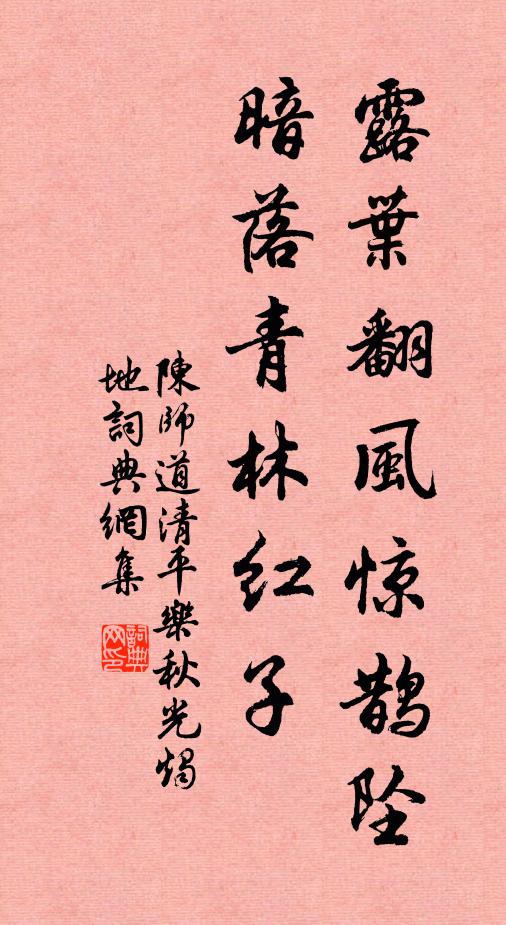 露葉翻風惊鹊坠
暗落青林红子
陳師道清平樂秋光燭
地詞典網集
詞典网印